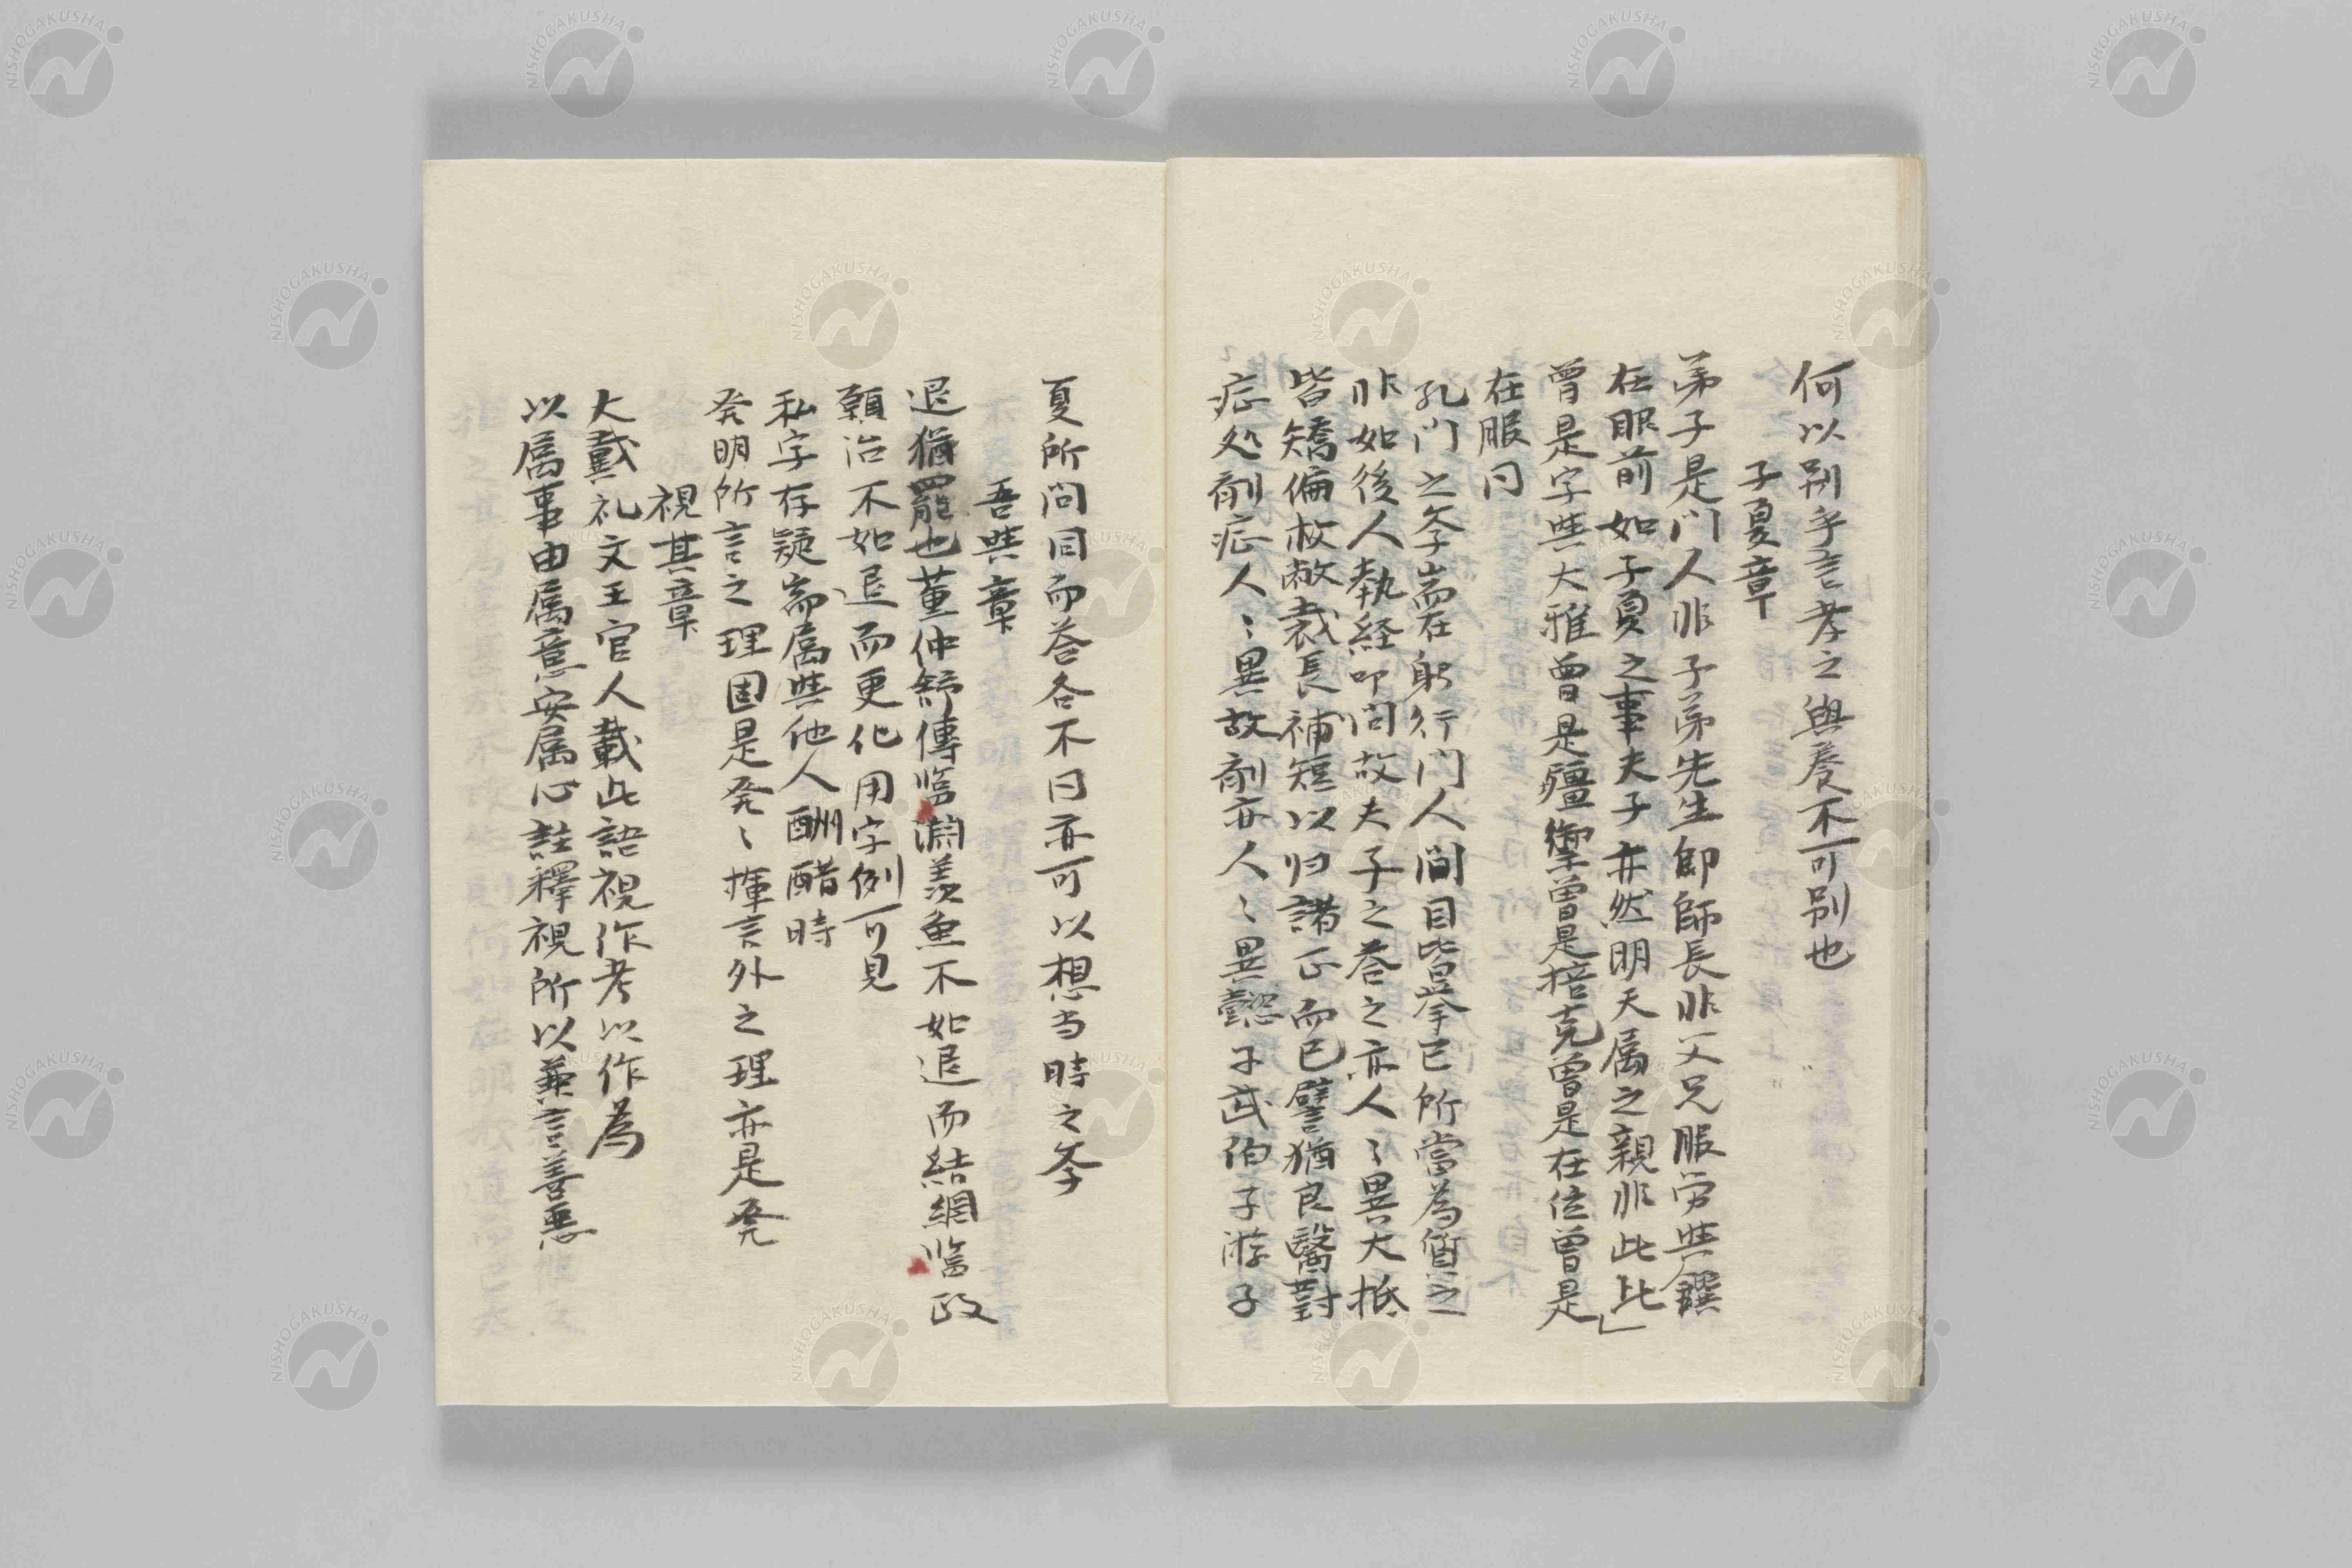 何以別乎言孝之與養不可別也
子夏章
弟子是門人非子弟先生即師長非父兄服労与饌
在眼前如子夏之事夫子亦然明天属之親非此比」
曽是字与大雅曽是彊禦曽是掊克曽是在位曽是
在服同
孔門之孝耑在躬行門人間目皆挙已所當為質之
非如後人執経叩問故夫子之荅之亦人〻異大抵
皆矯偏救敝裁長補短以归諸正而已譬猶良醫對
症処剤症人〻異故剤亦人〻異懿子武伯子游子
夏所問同而荅各不同亦可以想当時之孝
吾与章
退猶罷也董仲舒傳臨淵羨魚不如退而結網臨政
願治不如退而更化用字例可見
私字存疑耑属与他人酬醋時
発明所言之理固是発〻揮言外之理亦是発
視其章
大戴礼文王官人載此語視作考以作為
以属事由属意安属心註釋視所以兼言善悪
NISHOGAKUSHA